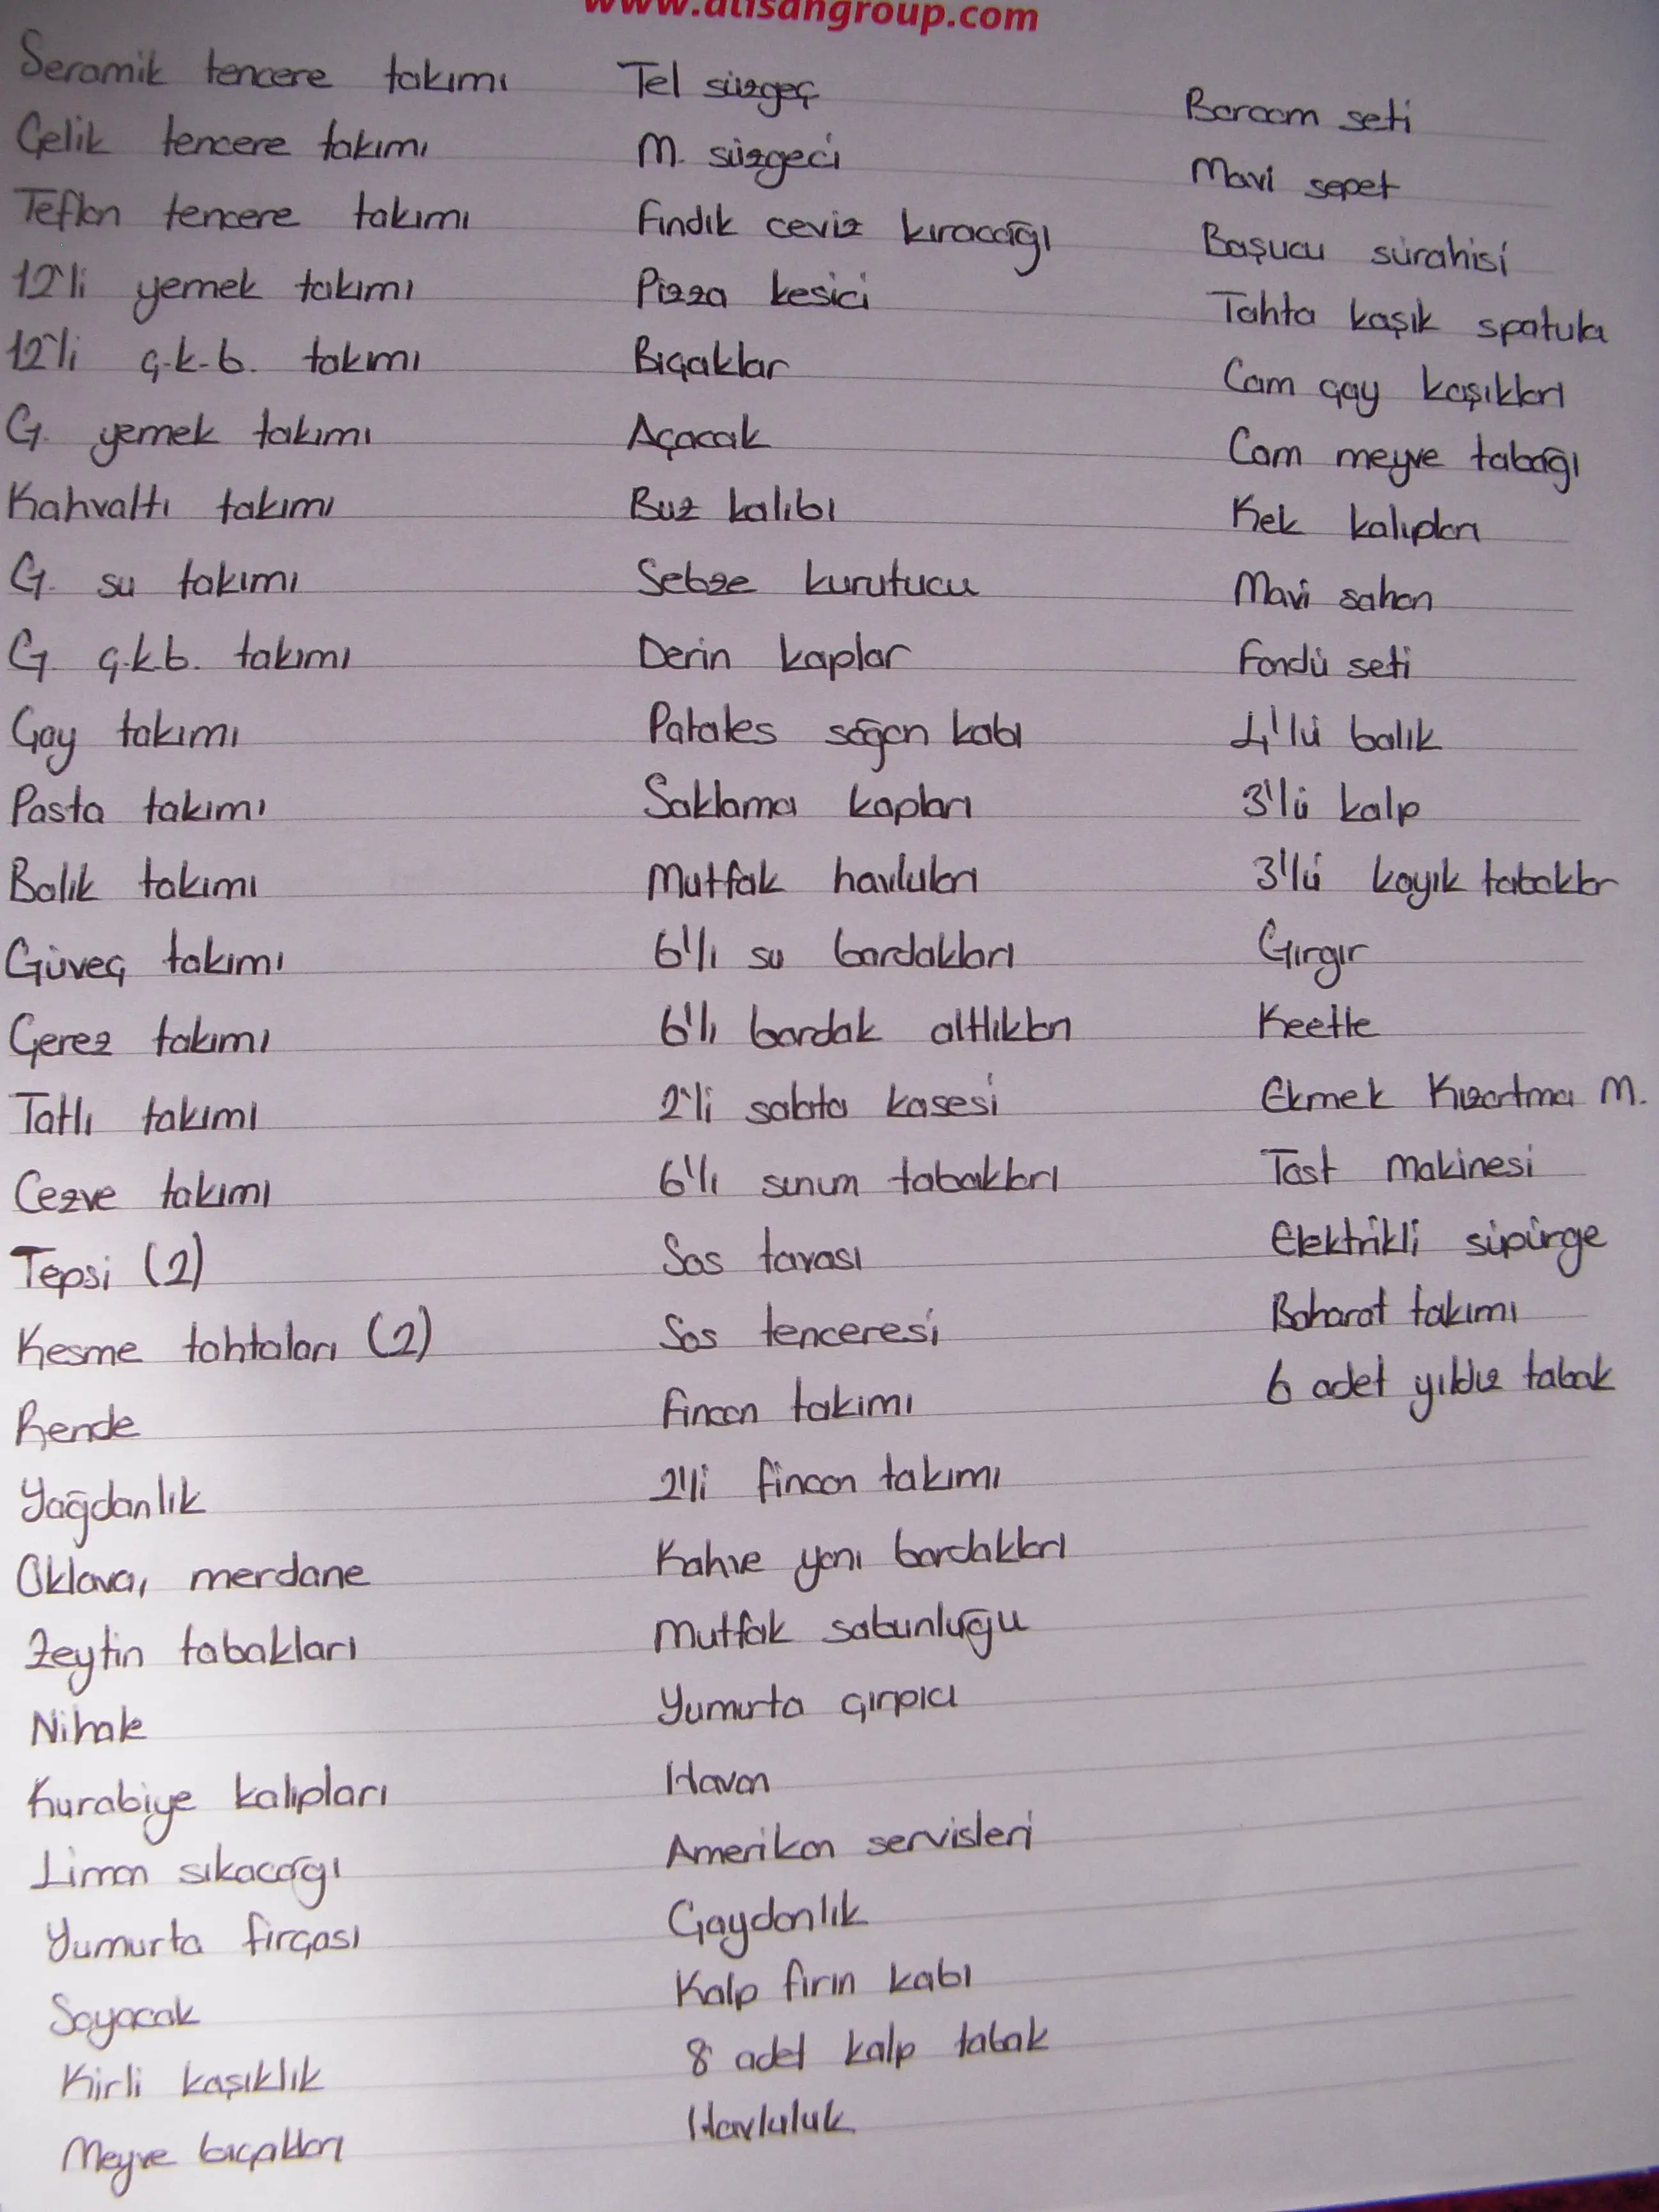 www.atisangroup.com
Seramik tencere takımı
Çelik tencere takımı
Teflon tencere takımı
12'li yemek takımı
12'li ç.k.b. takımı
G. yemek takımı
Kahvaltı takımı
G. su takımı
G. ç.k.b. takımı
Çay takımı
Pasta takımı
Balık takımı
Güveç takımı
Çerez takımı
Tatlı takımı
Cezve takımı
Tepsi (2)
Kesme tahtaları (2)
Rende
Yağdanlık
Oklava, merdane
Zeytin tabakları
Nihale
Kurabiye kalıpları
Limon sıkacağı
Yumurta fırçası
Soyacak
Kirli kaşıklık
Meyve bıçakları
Tel süzgeç
M. süzgeci
Fındık ceviz kıracağı
Pizza kesici
Bıçaklar
Açacak
Buz kalıbı
Sebze kurutucu
Derin kaplar
Patates soğan kabı
Saklama kapları
Mutfak havluları
6'lı su bardakları
6'lı bardak altlıkları
2'li salata kasesi
6'lı sunum tabakları
Sos tavası
Sos tenceresi
Fincan takımı
2'li fincan takımı
Kahve yanı bardakları
Mutfak sabunluğu
Yumurta çırpıcı
Havan
Amerikan servisleri
Çaydanlık
Kalp fırın kabı
8 adet kalp tabak
Havluluk
Borcam seti
Mavi sepet
Başucu sürahisi
Tahta kaşık spatula
Cam çay kaşıkları
Cam meyve tabağı
Kek kalıpları
Mavi sahan
Fondü seti
4'lü balık
3'lü kalp
3'lü kayık tabaklar
Gırgır
Keetle
Ekmek Kızartma M.
Tost Makinesi
Elektrikli süpürge
Baharat takımı
6 adet yıldız tabak